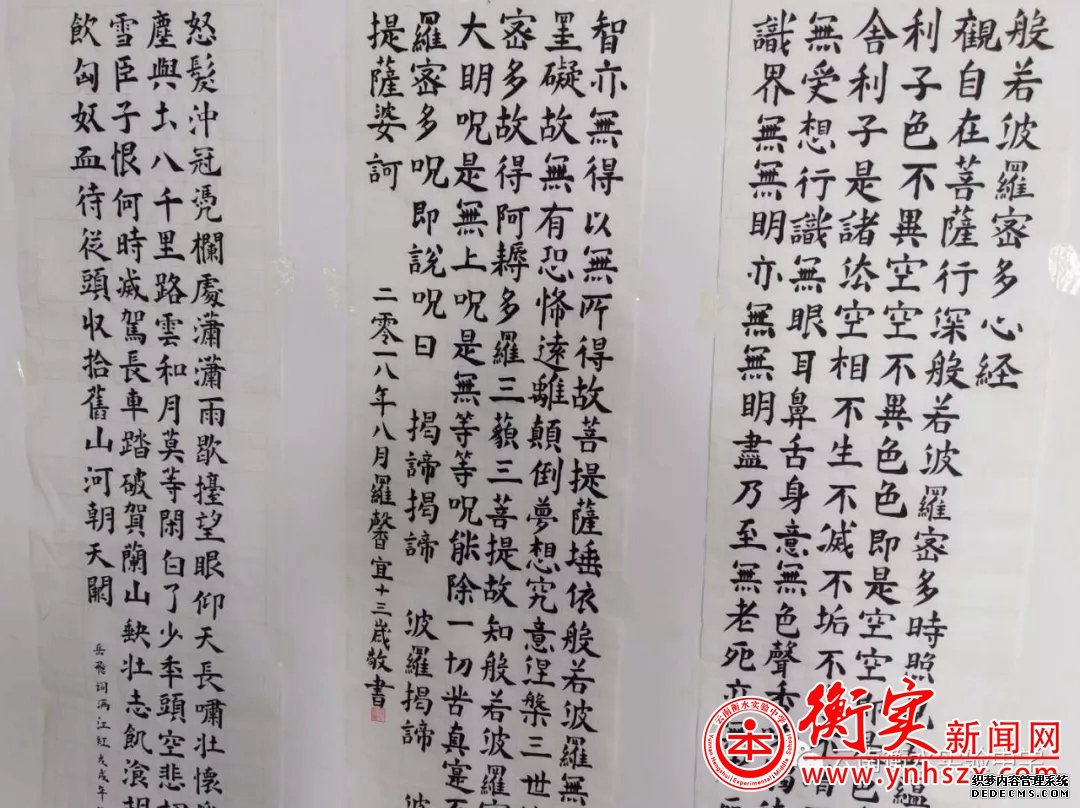 般若波羅密多心经
觀自在菩薩行深般若波羅密多時照
利子色不異空空不異色色即是空空即是色
舍利子是諸法空相不生不滅不垢不
無受想行識無眼耳鼻舌身意無色聲香
識界無無明亦無無明盡乃至無老死亦
智亦無得以無所得故菩提薩埵依般若波羅無
罣礙故無有恐怖遠離顛倒夢想究意涅槃三世
密多故得阿耨多羅三藐三菩提故知般若波羅
大明咒是無上咒是無等等咒能除一切苦真寔不
羅密多咒即說咒曰 揭諦揭諦 波羅揭諦 波
提薩婆訶
二零一八年八月羅馨宜十三歲敬書
怒髮沖冠凭欄處瀟瀟雨歇擡望眼仰天長嘯壯懷
塵與土八千里路雲和月莫等閑白了少年頭空悲
雪臣子恨何時滅駕長車踏破賀蘭山缺壯志飢飡胡
飲匈奴血待從頭收拾舊山河朝天闕
岳飛詞滿江紅戊戌年
衡实新闻网
www.ynhszx.com
云南衡水实验中学
Yunnan Hengshui Experimental Middle School
织梦内容管理系统
DEDECMS.COM